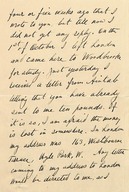 four or five weeks ago that I
wrote to you. but till now I
did not get any reply. On the
1st of October I left London
and came here to Woodbrooke
for study. Just yesterday I
received a letter from
telling that you have already
sent to me ten pounds. If
it is so, I am afraid the money
is lost in somewhere. In London
my address was 143, Westbourne
Terrace, Hyde Park, W. Any letter
coming to my address to London
would be directed to me and